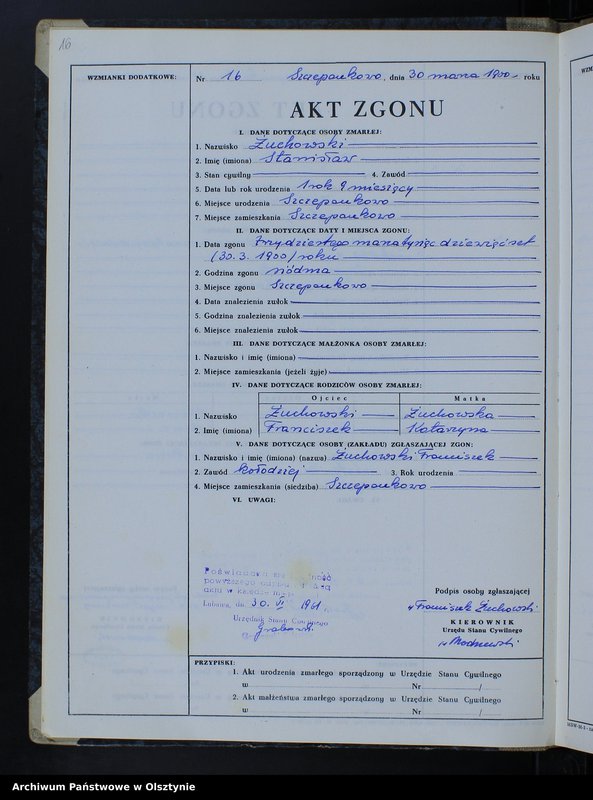 16
WZMIANKI DODATKOWE:
Nr 16 Szczepankowo, dnia 30 marca 1900 roku
AKT ZGONU
I. DANE DOTYCZĄCE OSOBY ZMARŁEJ:
1. Nazwisko Żuchowski
2. Imię (imiona) Stanisław
3. Stan cywilny 4. Zawód
5. Data lub rok urodzenia 1 rok 9 miesięcy
6. Miejsce urodzenia Szczepankowo
7. Miejsce zamieszkania Szczepankowo
II. DANE DOTYCZĄCE DATY I MIEJSCA ZGONU:
1. Data zgonu trzydziestego marca tysiąc dziewięćset
(30. 3. 1900) roku
2. Godzina zgonu siódma
3. Miejsce zgonu Szczepankowo
4. Data znalezienia zwłok
5. Godzina znalezienia zwłok
6. Miejsce znalezienia zwłok
III. DANE DOTYCZĄCE MAŁŻONKA OSOBY ZMARŁEJ:
1. Nazwisko i imię (imiona)
2. Miejsce zamieszkania (jeżeli żyje)
IV. DANE DOTYCZĄCE RODZICÓW OSOBY ZMARŁEJ:
Ojciec Matka
1. Nazwisko Żuchowski Żuchowska
2. Imię (imiona) Franciszek Katarzyna
V. DANE DOTYCZĄCE OSOBY (ZAKŁADU) ZGŁASZAJĄCEJ ZGON:
1. Nazwisko i imię (imiona) (nazwa) Żuchowski Franciszek
2. Zawód kołodziej 3. Rok urodzenia
4. Miejsce zamieszkania (siedziba) Szczepankowo
VI. UWAGI:
Poświadcza się zgodność
powyższego
aktu w księdze
Lubawa, dn. 30. VI 1961 r.
Urzędnik Stanu Cywilnego
Podpis osoby zgłaszającej
Franciszek Żuchowski
KIEROWNIK
Urzędu Stanu Cywilnego
PRZYPISKI:
1. Akt urodzenia zmarłego sporządzony w Urzędzie Stanu Cywilnego
w Nr /
2. Akt małżeństwa zmarłego sporządzony w Urzędzie Stanu Cywilnego
w Nr /
Archiwum Państwowe w Olsztynie